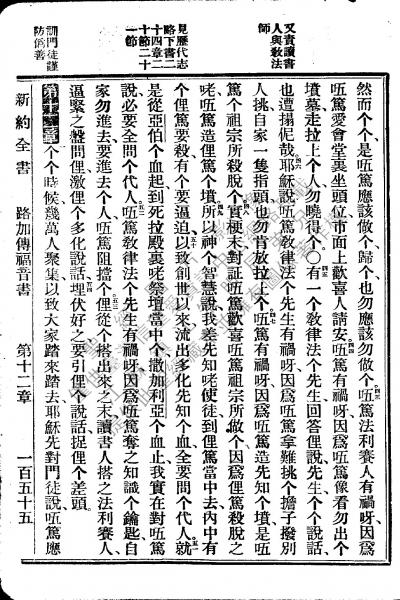 又責讀書人與教法師
見歷代志略下書二十四章二十節二十一節
訓門徒謹防僞善
然而个个是唔篤應該做个歸个也勿應該勿做个唔篤法利賽人有禍呀因爲
唔篤愛會堂裏坐頭位市面上歡喜人請安唔篤有禍呀因爲唔篤像看勿出个
墳墓走拉上个人勿曉得个○有一个敎律法个先生回答俚說先生个个說話
也遭塌伲哉耶穌說唔篤敎律法个先生有禍呀因爲唔篤拿難挑个擔子撥別
人挑自家一隻指頭也勿肯放拉上个唔篤有禍呀因爲唔篤造先知个墳是唔
篤个祖宗所殺脫个實梗末對証唔篤歡喜唔篤祖宗所做个因爲俚篤殺脫之
咾唔篤造俚篤个墳所以神个智慧說我差先知咾使徒到俚篤當中去內中有
个俚篤要殺有个要逼迫以致創世以來流出多化先知个血全要問个代人就
是從亞伯个血起到死拉殿裏咾祭壇當中个撒加利亞个血止我實在對唔篤
說必要全問个代人唔篤敎律法个先生有禍呀因爲唔篤奪之知識个鑰匙自
家勿進去要進去个人唔篤阻擋个俚從个搭出來之末讀書人搭之法利賽人
逼緊之盤問俚激俚个多化說話埋伏好之要引俚个說話捉俚个差頭
第十二章个个時候幾萬人聚集以致大家踏來踏去耶穌先對門徒說唔篤應
新約全書 路加傳福音書 第十二章 一百五十五